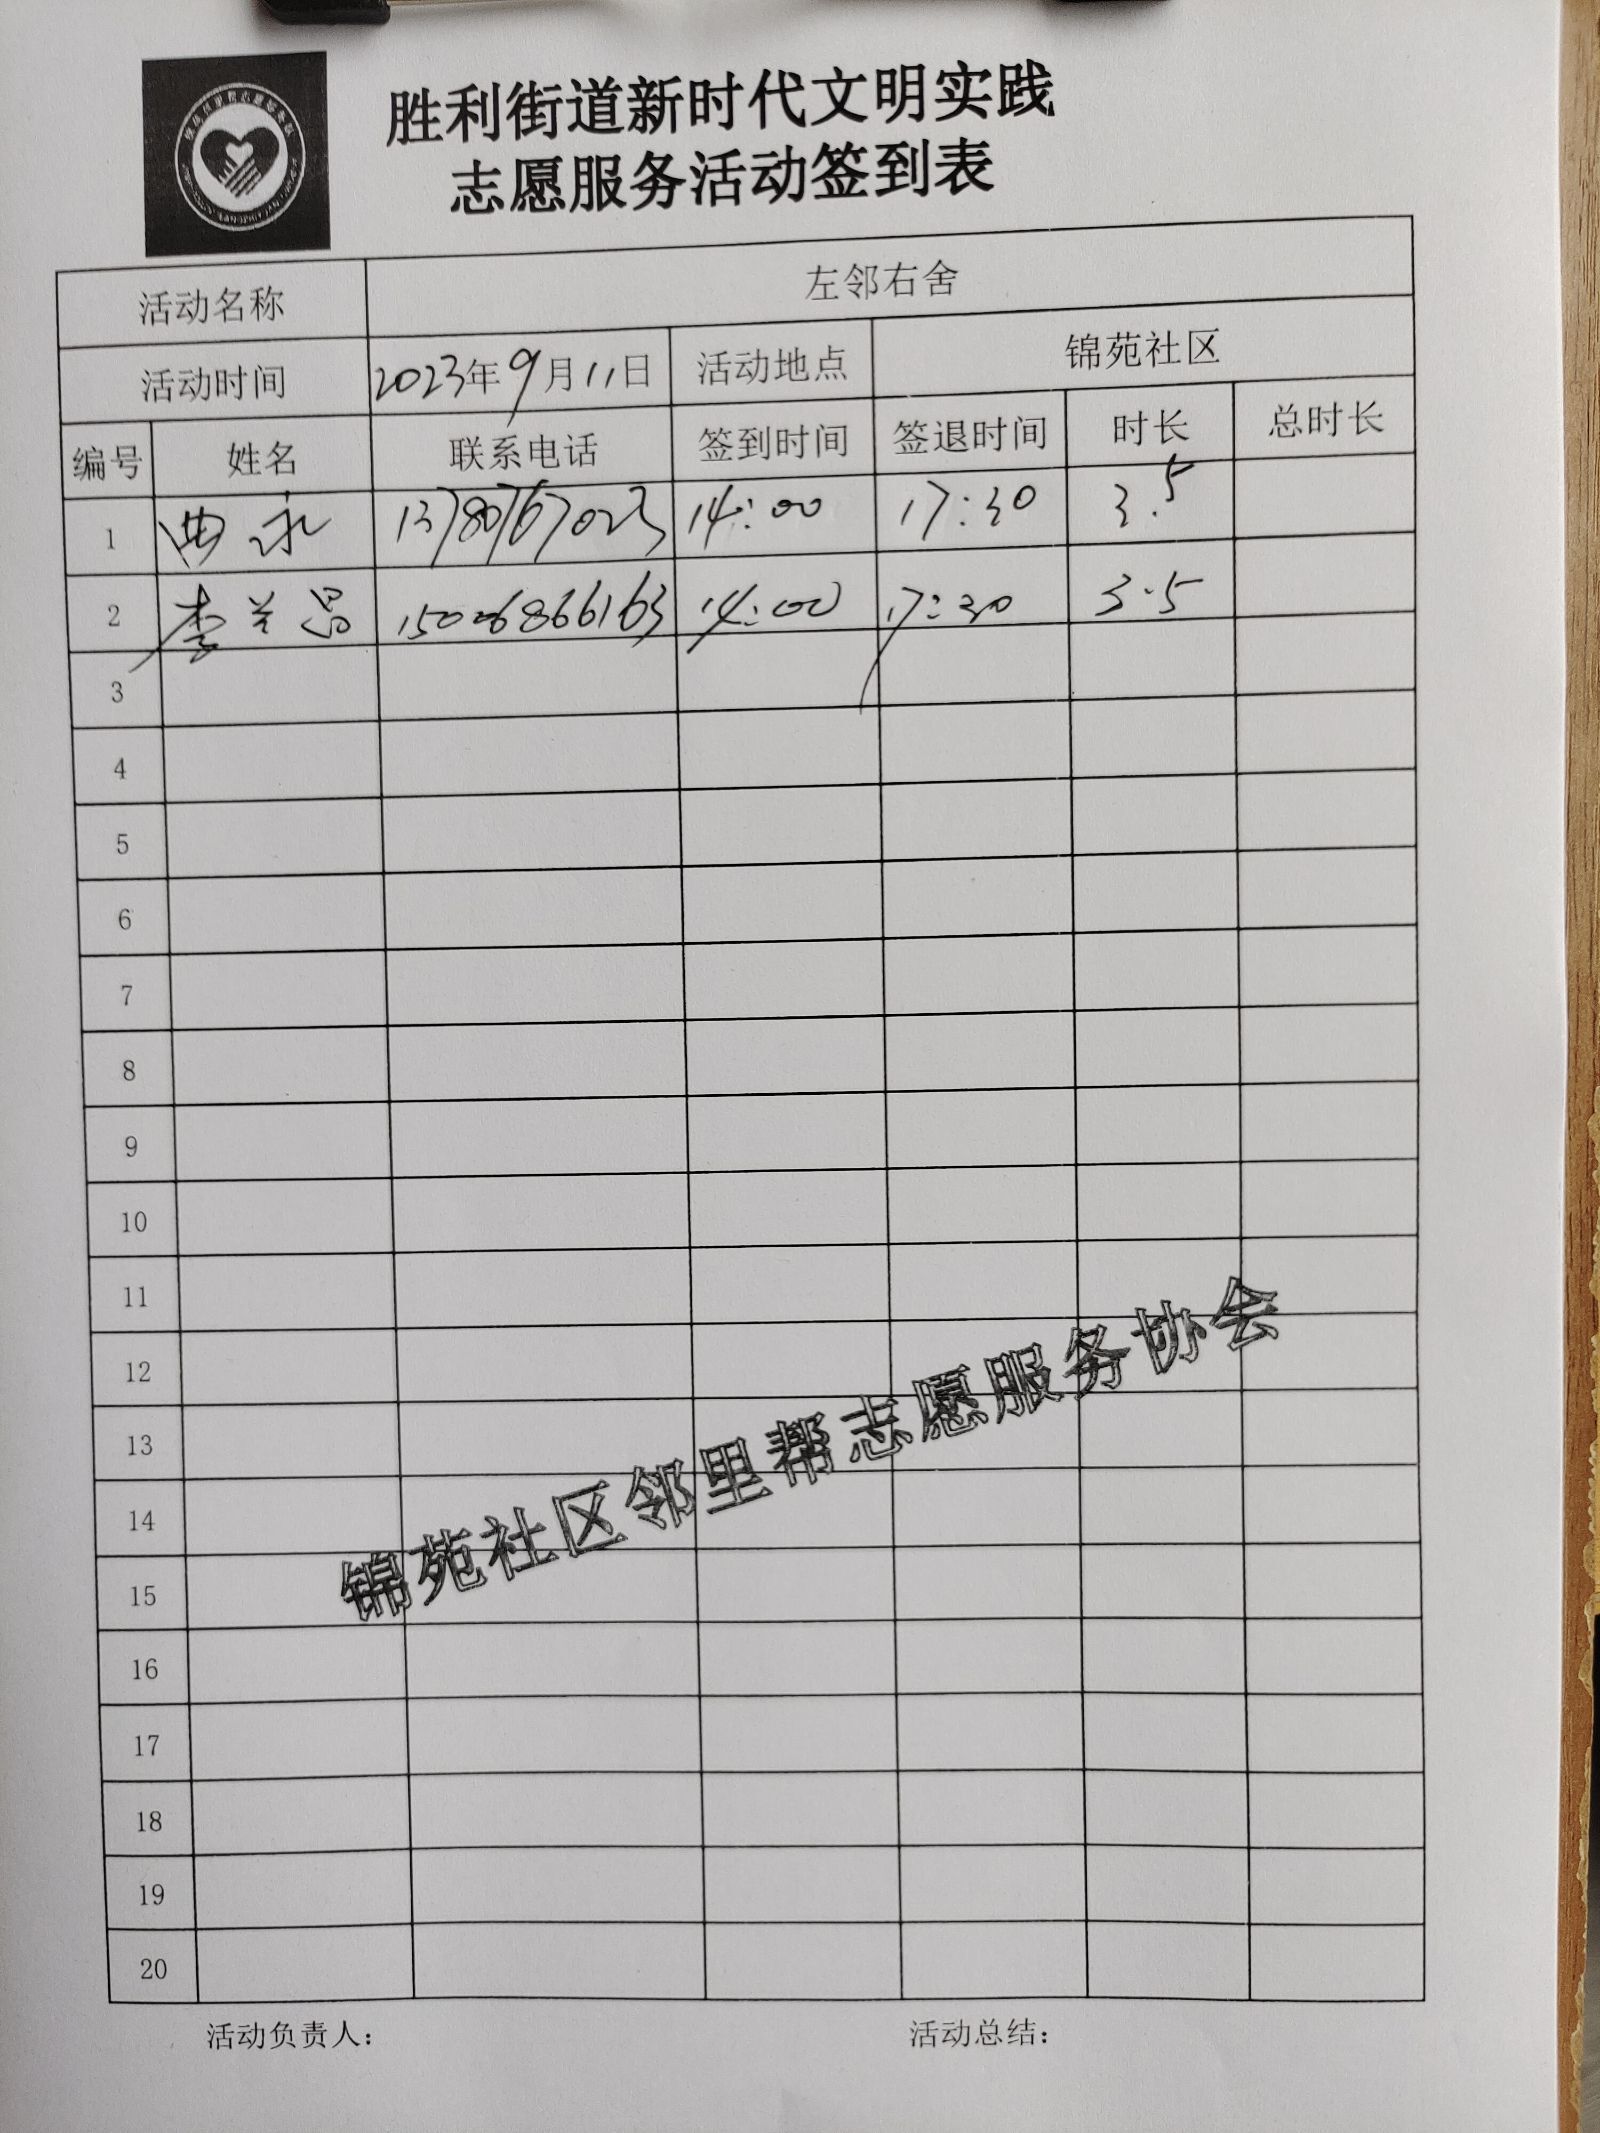 胜利街道新时代文明实践
志愿服务活动签到表
活动名称 左邻右舍
活动时间 2023年9月11日 活动地点 锦苑社区
编号 姓名 联系电话 签到时间 签退时间 时长 总时长
1 曲永 13780767023 14:00 17:30 3.5
2 李兰昌 15006866163 14:00 17:30 3.5
3
4
5
6
7
8
9
10
11
12
13
14
15
16
17
18
19
20
锦苑社区邻里帮志愿服务协会
活动负责人: 活动总结: